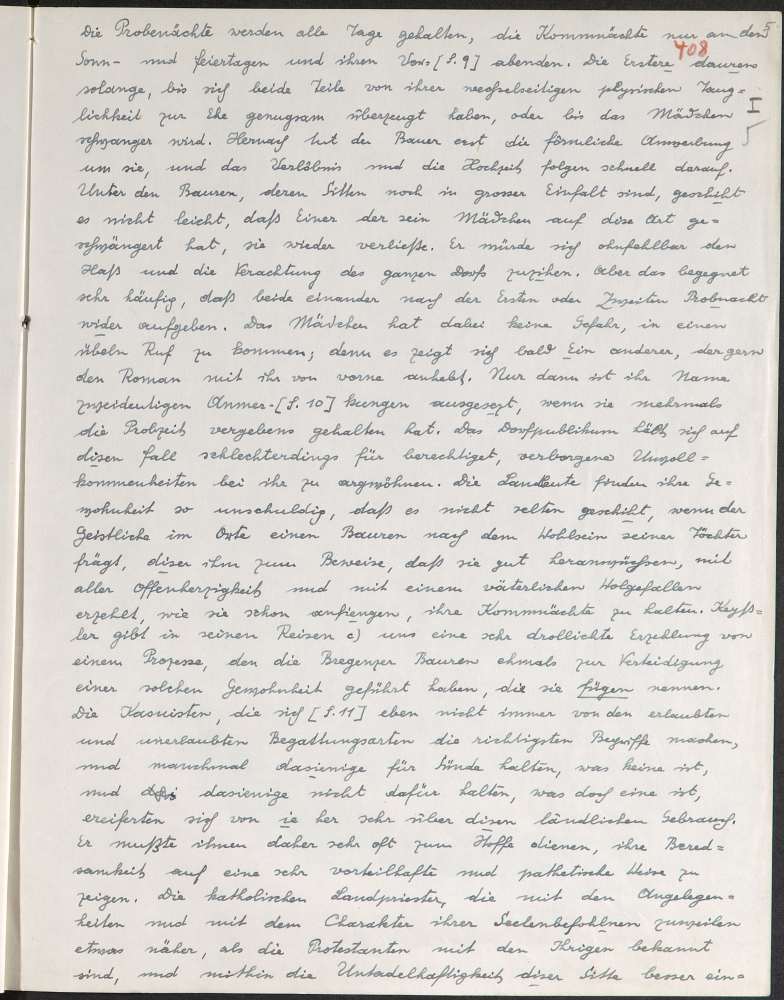 5
408
Die Probenächte werden alle Tage gehalten, die Kommnächte nur an den
Sonn- und feiertagen und ihren Vor-[S.9] abenden. Die Erstere daurens
solange, bis sich beide Teile von ihrer wechselseitigen physischen Taug=
lichkeit zur Ehe genugsam überzeugt haben, oder bis das Mädchen
I
schwanger wird. Hernach tut der Bauer erst die förmliche Anwerbung
5
um sie, und das Verlöbnis und die Hochzeit folgen schnell darauf.
Unter den Bauren, deren Sitten noch in grosser Einfalt sind, geschiht
es nicht leicht, daß Einer der sein Mädchen auf dise Art ge=
schwängert hat, sie wieder verließe. Er würde sich ohnfehlbar den
Haß und die Verachtung des ganzen Dorfs zuzihen. Aber das begegnet
sehr häufig, daß beide einander nach der Ersten oder Zweiten Probnacht
wider aufgeben. Das Mädchen hat dabei keine Gefahr, in einen
übeln Ruf zu kommen; denn es zeigt sich bald Ein anderer, der gern
den Roman mit ihr von vorne anhebt. Nur dann ist ihr Name
zweideutigen Anmer-[S.10] kungen ausgesezt, wenn sie mehrmals
die Probzeit vergebens gehalten hat. Das Dorfpublikum hält sich auf
disen fall schlechterdings für berechtiget, verborgene Unvoll=
kommenheiten bei ihr zu argwöhnen. Die Landleute finden ihre Ge=
wohnheit so unschuldig, daß es nicht selten geschiht, wenn der
Geistliche im Orte einen Bauren nach dem Wohlsein seiner Töchter
frägt, diser ihm zum Beweise, daß sie gut heranwüchsen, mit
aller Offenherzigkeit und mit einem väterlichen Wolgefallen
erzehlt, wie sie schon anfiengen, ihre Kommnächte zu halten. Keyß=
ler gibt in seinen Reisen c) uns eine sehr drollichte Erzehlung von
einem Prozesse, den die Bregenzer Bauren ehmals zur Verteidigung
einer solchen Gewohnheit geführt haben, die sie fügen nennen.
Die Kasuisten, die sich [S.11] eben nicht immer von den erlaubten
und unerlaubten Begattungsarten die richtigsten Begriffe machen,
und manchmal dasienige für Sünde halten, was keine ist,
und dasienige nicht dafür halten, was doch eine ist,
ereiferten sich von ie her sehr über disen ländlichen Gebrauch.
Er mußte ihnen daher sehr oft zum Stoffe dienen, ihre Bered=
samkeit auf eine sehr vorteilhafte und pathetische Weise zu
zeigen. Die katholischen Landpriester, die mit den Angelegen=
heiten und mit dem Charakter ihrer Seelenbefohlnen zuweilen
etwas näher, als die Protestanten mit den Ihrigen bekannt
sind, und mithin die Untadelhaftigkeit diser Sitte besser ein=